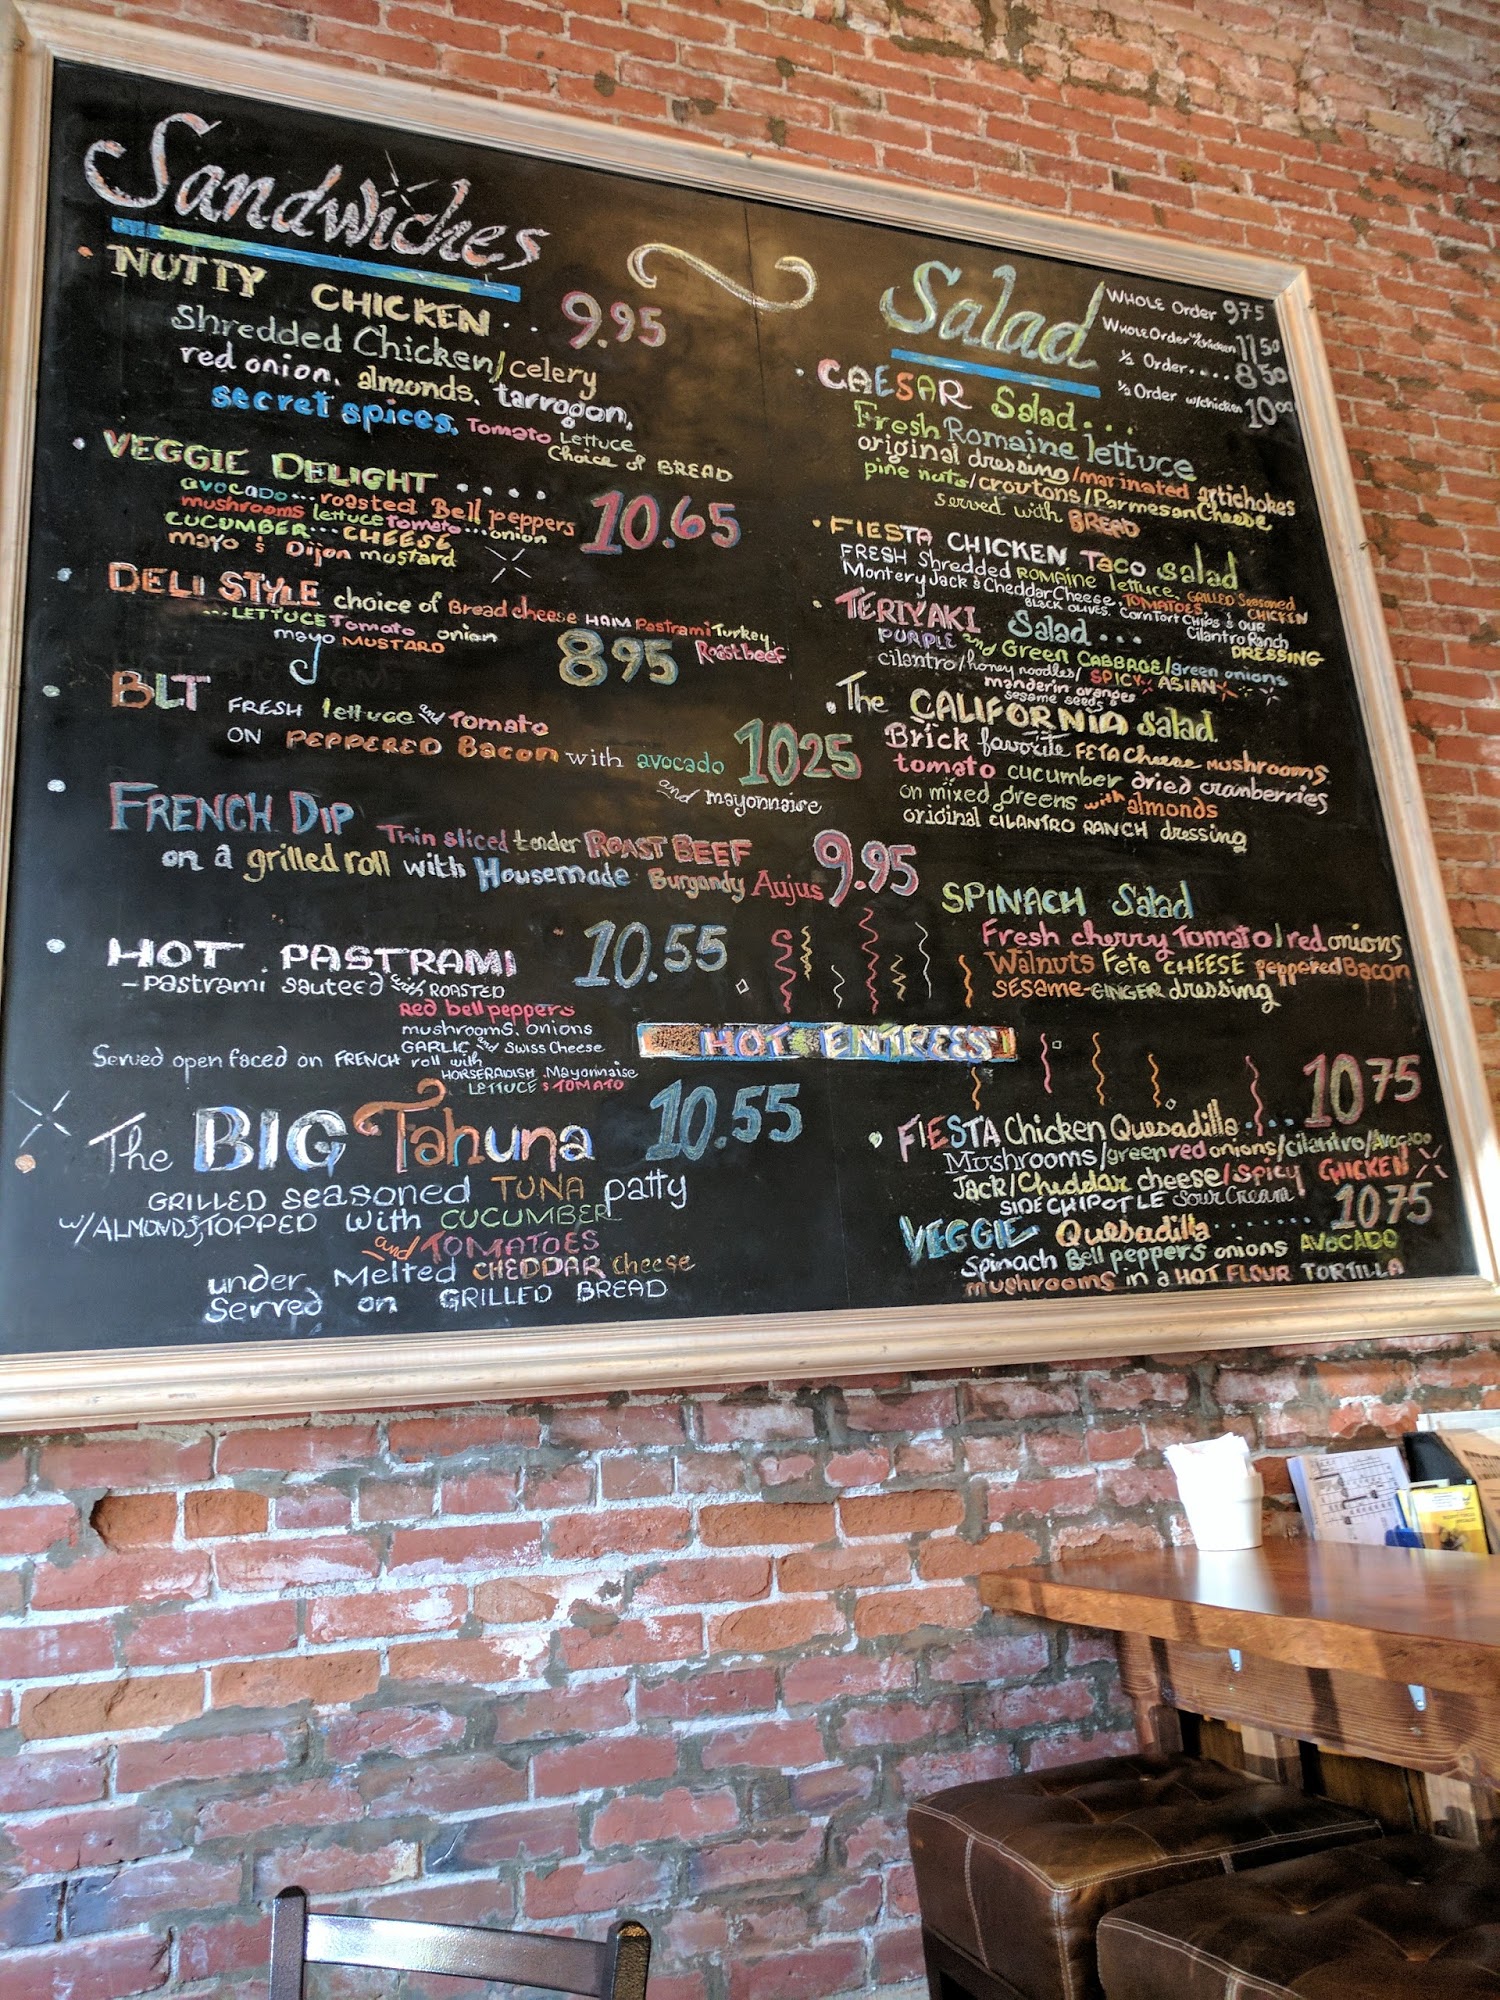 Sandwiches
NUTTY CHICKEN . . 9.95
Shredded Chicken/celery
red onion, almonds, tarragon,
secret spices, Tomato Lettuce
Choice of BREAD
VEGGIE DELIGHT . . . . 10.65
avocado...roasted Bell peppers
mushrooms lettuce tomato...onion
CUCUMBER...CHEESE
mayo & Dijon mustard
DELI STYLE choice of Bread cheese HAM Pastrami Turkey,
...LETTUCE Tomato onion Roast beef
mayo MUSTARD 8.95
BLT FRESH lettuce and Tomato
ON PEPPERED Bacon with avocado 10.25
and mayonnaise
FRENCH DIP Thin sliced tender ROAST BEEF
on a grilled roll with Housemade Burgandy Aujus 9.95
HOT PASTRAMI 10.55
- Pastrami sauteed with ROASTED
Red bell peppers
mushrooms, onions
GARLIC and Swiss Cheese
Served open faced on FRENCH roll with
HORSERADISH Mayonnaise
LETTUCE & TOMATO
The BIG Tahuna 10.55
GRILLED seasoned TUNA patty
w/ALMONDS, TOPPED with CUCUMBER
and TOMATOES
under Melted CHEDDAR cheese
Served on GRILLED BREAD
Salad
WHOLE Order 9.75
Whole Order w/chicken 11.50
½ Order.... 8.50
½ Order w/chicken 10.00
CAESAR Salad...
Fresh Romaine lettuce
original dressing/marinated artichokes
pine nuts/croutons/Parmesan Cheese
served with BREAD
FIESTA CHICKEN Taco salad
FRESH Shredded ROMAINE lettuce, GRILLED Seasoned
Montery Jack & Cheddar Cheese, TOMATOES, CHICKEN
BLACK OLIVES, Corn Tort Chips & OUR
Cilantro Ranch
DRESSING
TERIYAKI Salad...
PURPLE and Green CABBAGE/green onions
cilantro/honey noodles/ SPICY ASIAN
manderin oranges
sesame seeds
The CALIFORNIA salad.
Brick favorite FETA Cheese MUSHROOMS
tomato cucumber dried cranberries
on mixed greens with almonds
original CILANTRO RANCH dressing
SPINACH Salad
Fresh cherry Tomato/red onions
Walnuts Feta CHEESE peppered Bacon
SESAME-GINGER dressing
HOT ENTREES!
FIESTA Chicken Quesadilla . . . 10.75
Mushrooms/green red onions/cilantro/Avocado
Jack/Cheddar cheese/spicy CHICKEN
SIDE CHIPOTLE Sour Cream!
VEGGIE Quesadilla....... 10.75
Spinach Bell peppers onions AVOCADO
mushrooms in a HOT FLOUR TORTILLA